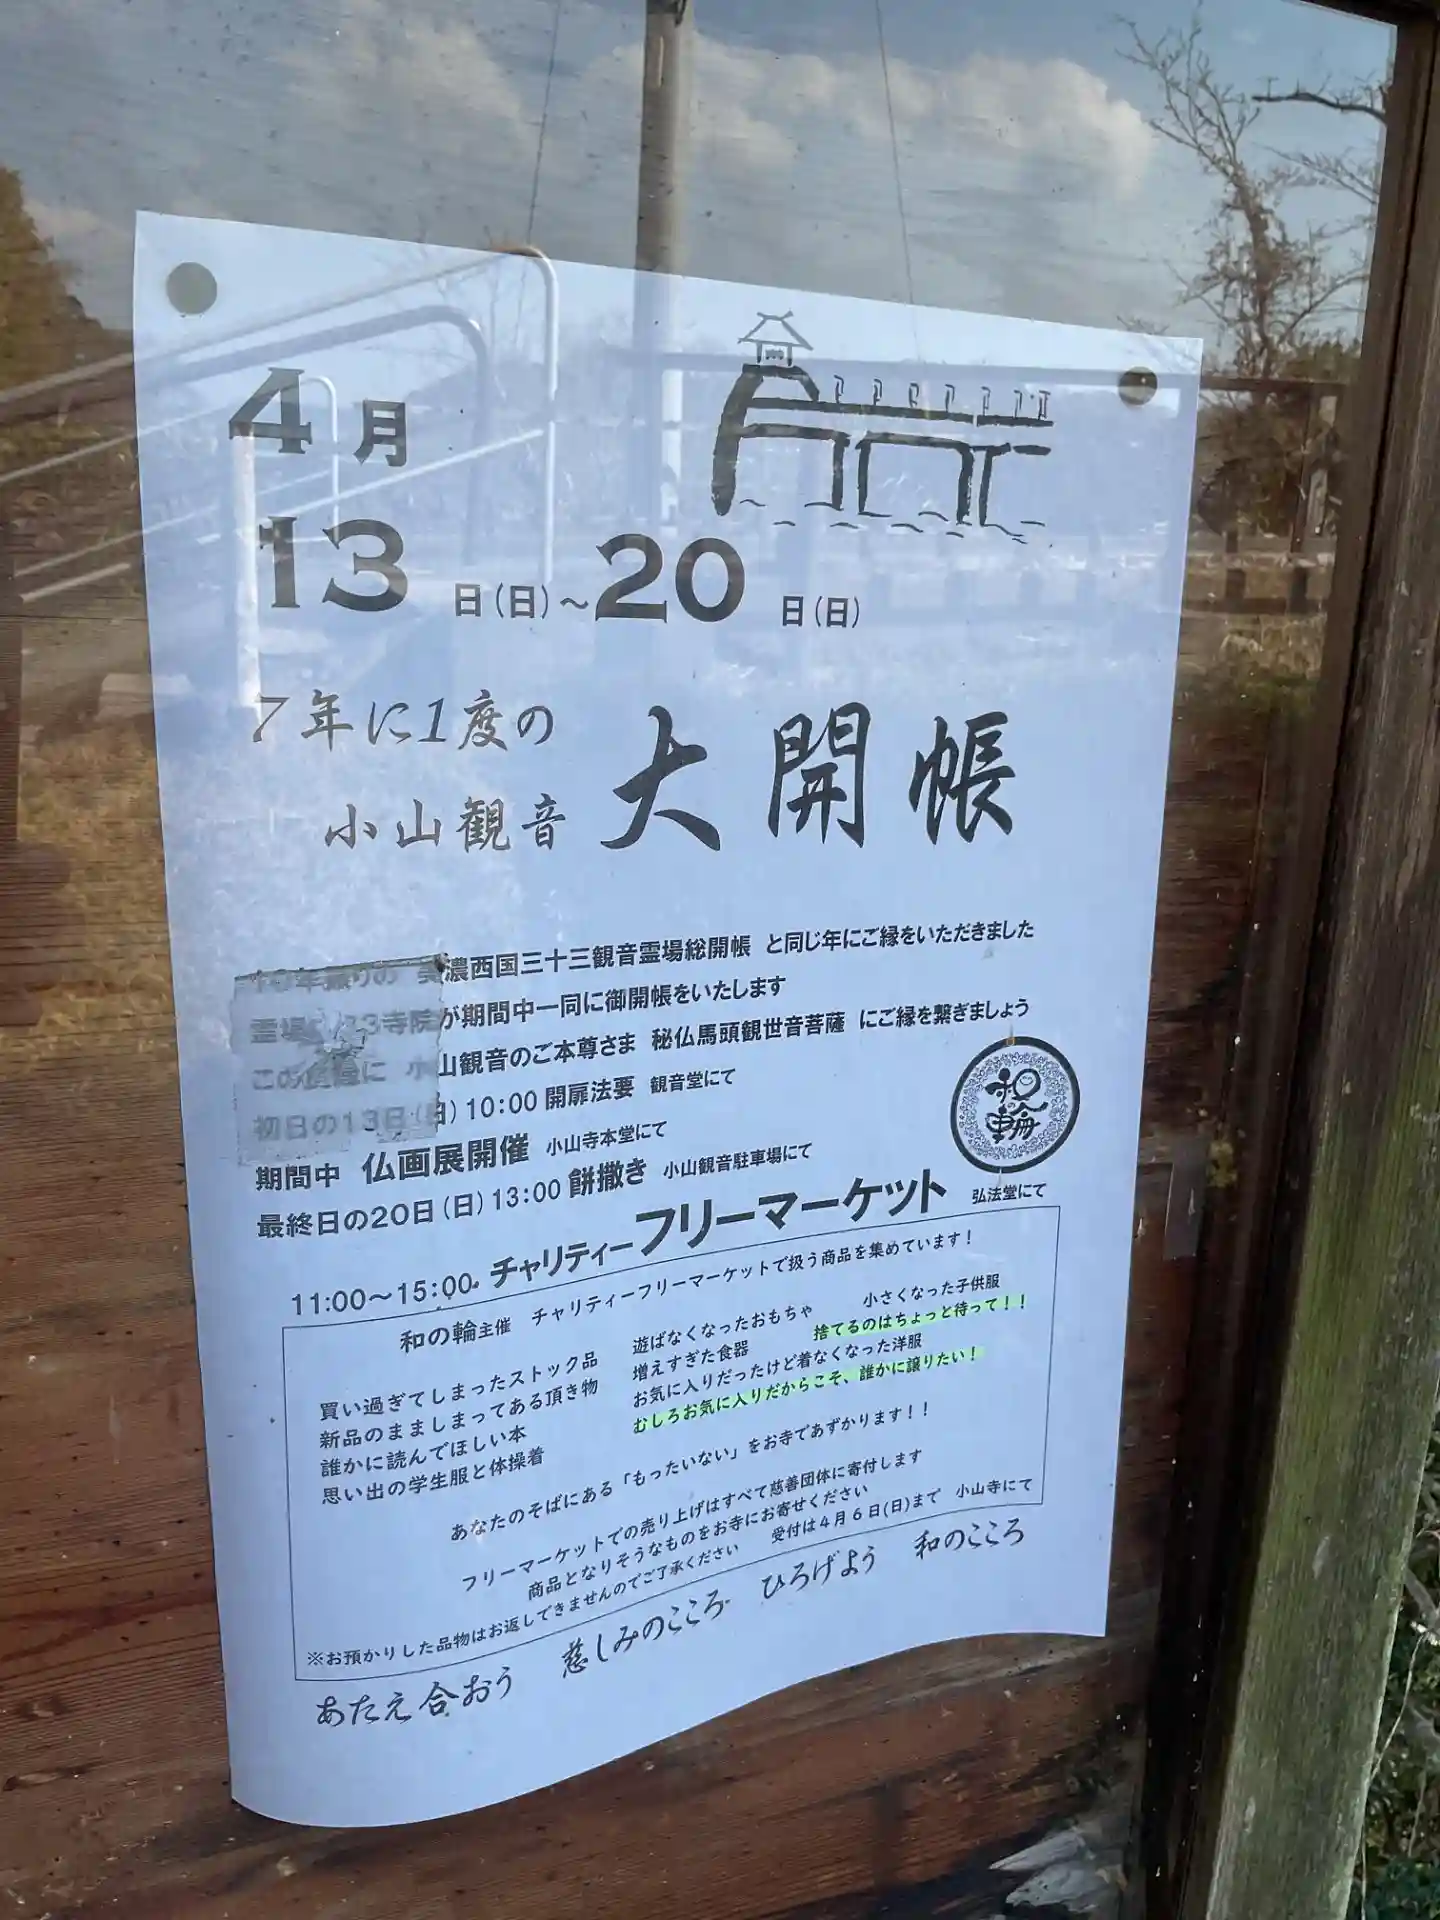 4月
13日(日)～20日(日)
7年に1度の
小山観音 大開帳
年振りの 美濃西国三十三観音霊場総開帳 と同じ年にご縁をいただきました
霊場 33寺院が期間中一同に御開帳をいたします
この に 小山観音のご本尊さま 秘仏馬頭観世音菩薩 にご縁を繋ぎましょう
初日の13日(日)10:00 開扉法要 観音堂にて
期間中 仏画展開催 小山寺本堂にて
最終日の20日(日)13:00 餅撒き 小山観音駐車場にて
和の輪
11:00～15:00 チャリティーフリーマーケット 弘法堂にて
和の輪主催 チャリティーフリーマーケットで扱う商品を集めています！
買い過ぎてしまったストック品 遊ばなくなったおもちゃ 小さくなった子供服
新品のまましまってある頂き物 増えすぎた食器 捨てるのはちょっと待って！！
誰かに読んでほしい本 お気に入りだったけど着なくなった洋服
思い出の学生服と体操着 むしろお気に入りだからこそ、誰かに譲りたい！
あなたのそばにある「もったいない」をお寺であずかります！！
フリーマーケットでの売り上げはすべて慈善団体に寄付します
商品となりそうなものをお寺にお寄せください
※お預かりした品物はお返しできませんのでご了承ください 受付は4月6日(日)まで 小山寺にて
あたえ合おう 慈しみのこころ ひろげよう 和のこころ